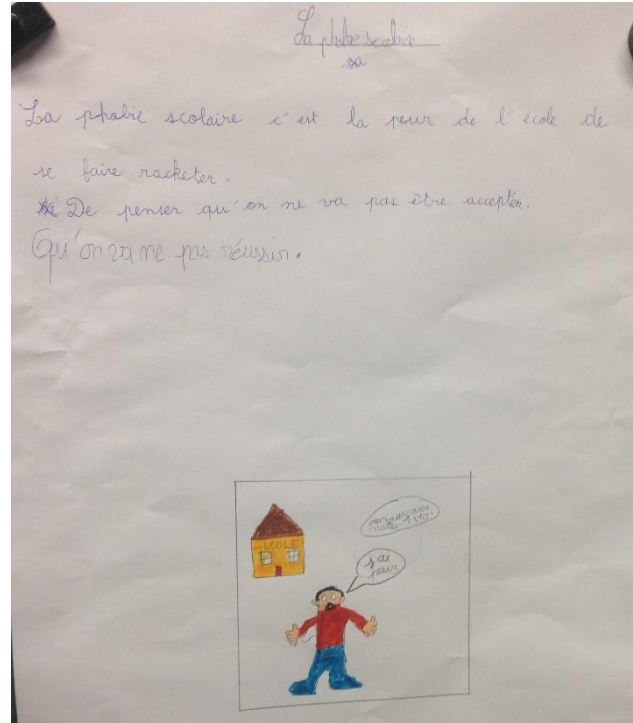 La phobie scolaire
La phobie scolaire c'est la peur de l'école de
se faire racketer.
De penser qu'on ne va pas être accepter.
Qu'on va ne pas réussir.
ECOLE
j'ai
peur